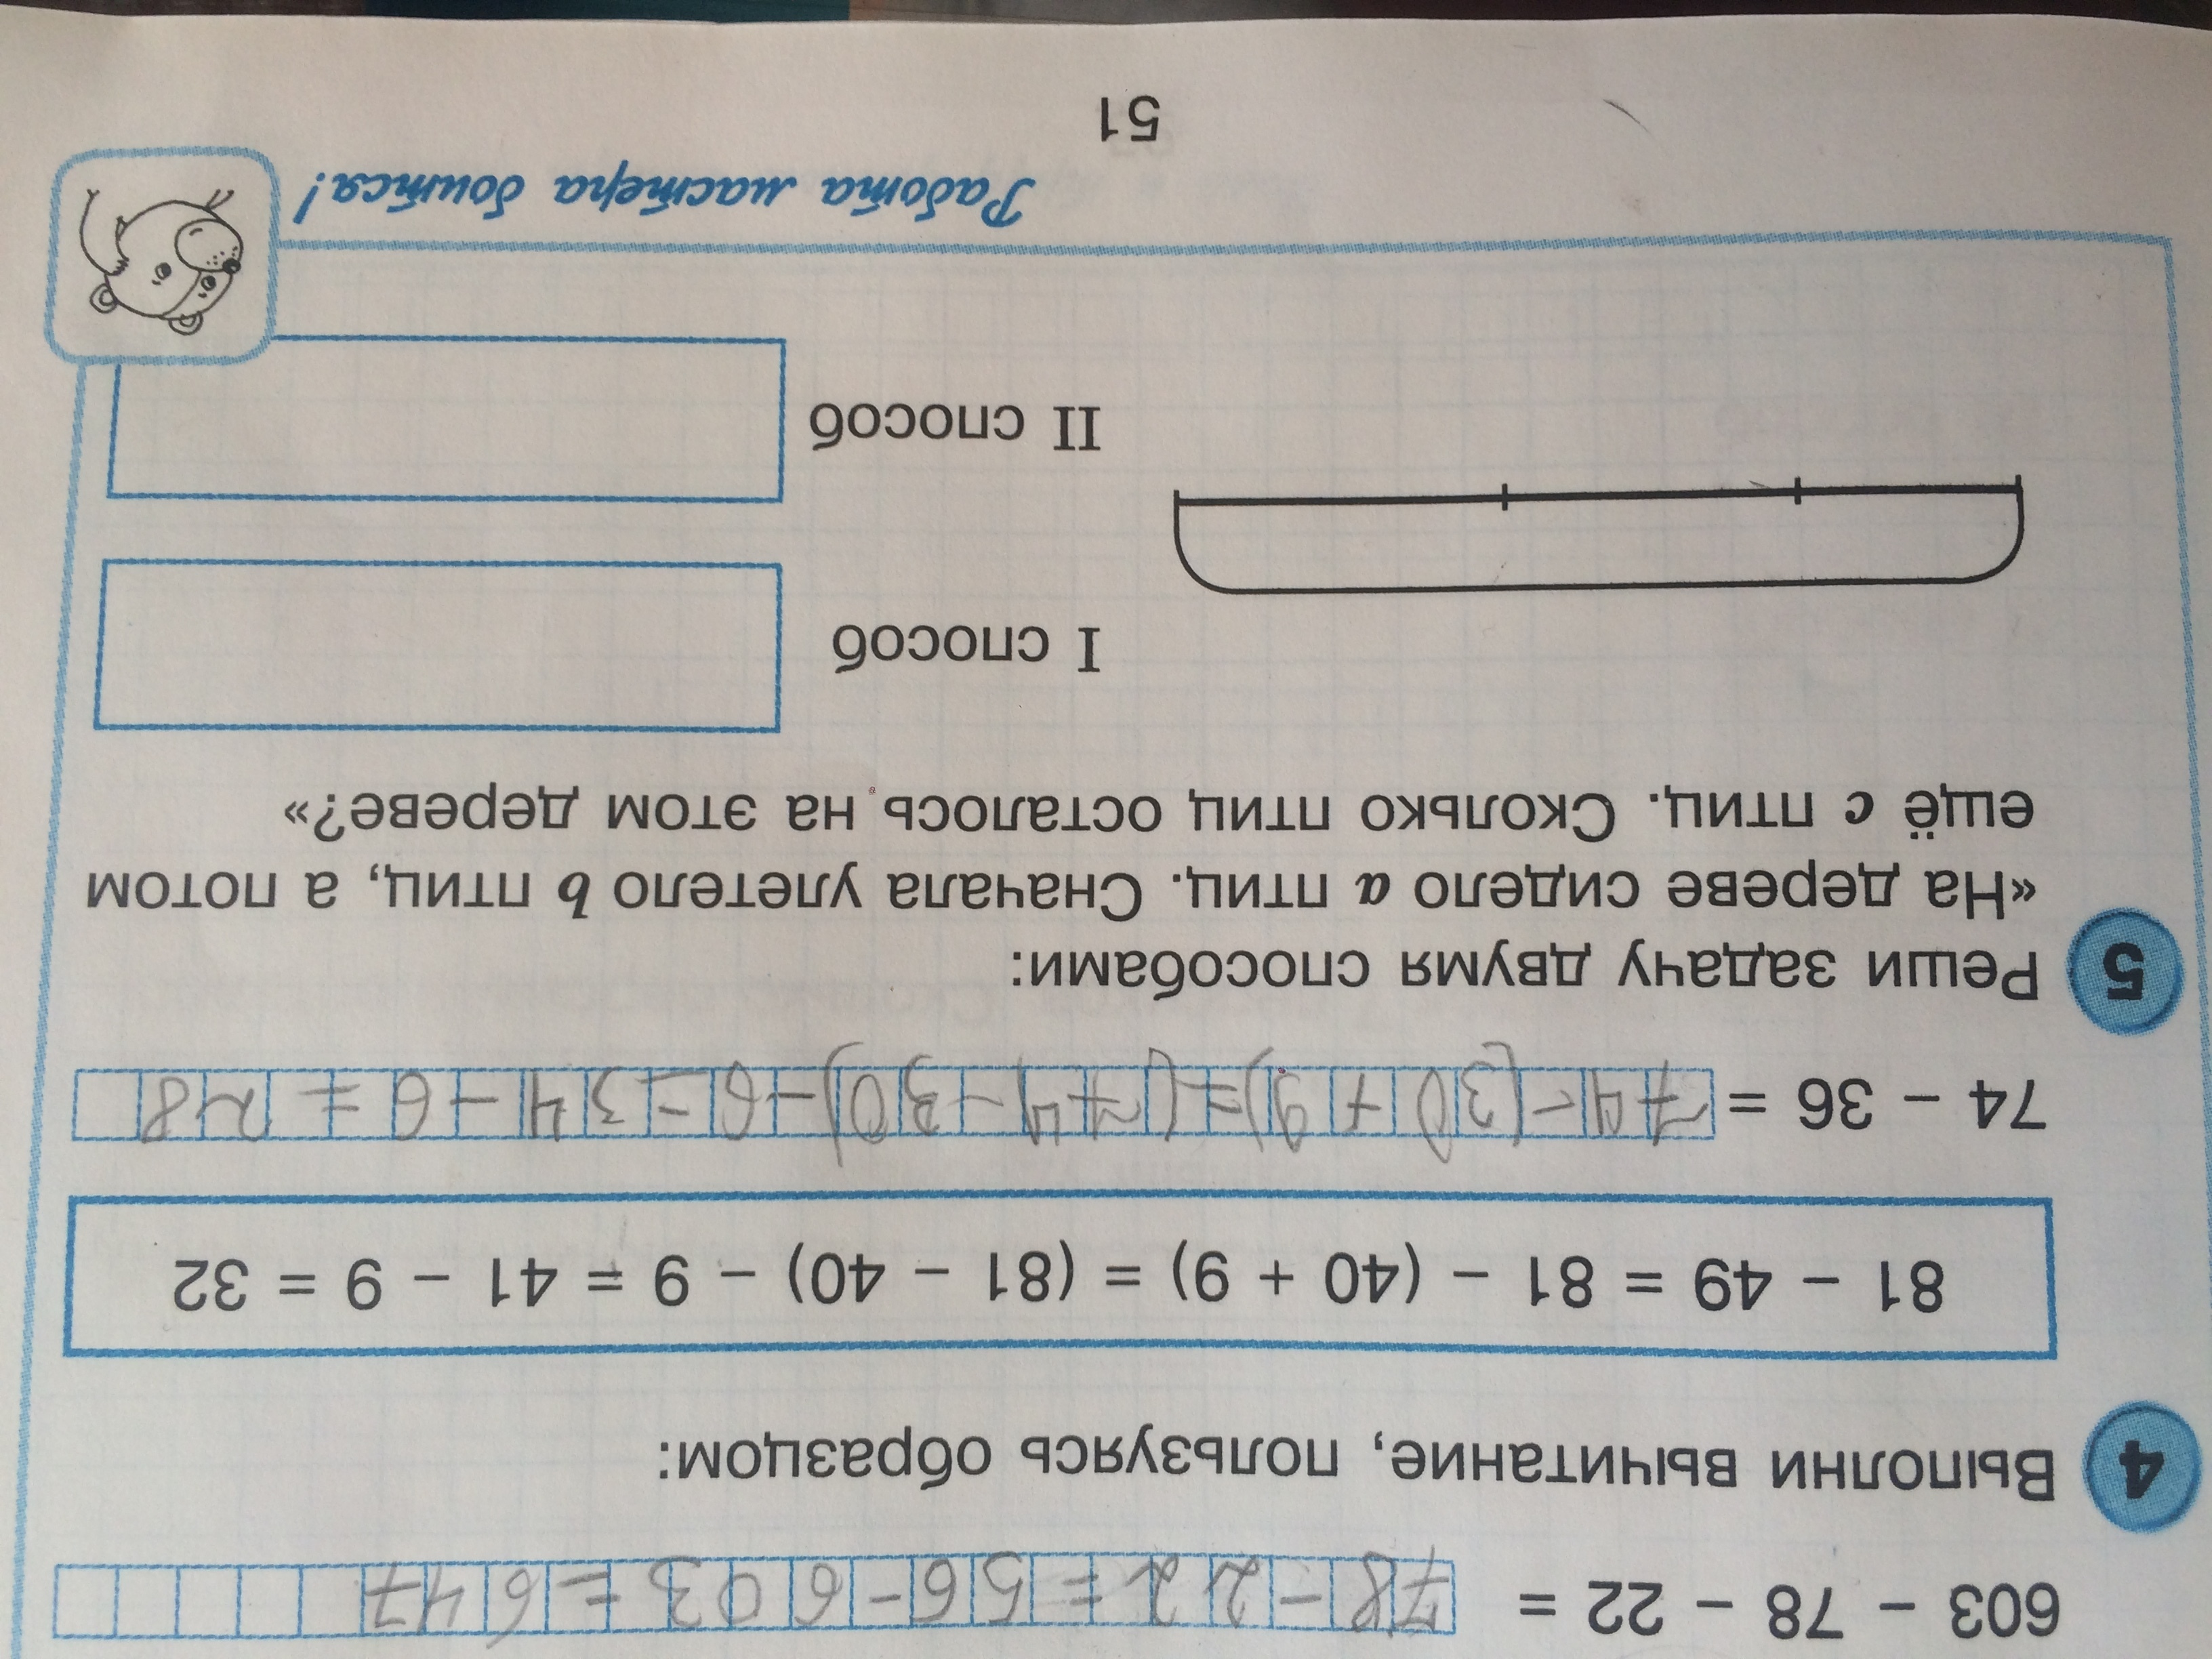 603 – 78 – 22 = 78-22=56-603=647
4 Выполни вычитание, пользуясь образцом:
81 – 49 = 81 – (40 + 9) = (81 – 40) – 9 = 41 – 9 = 32
74 – 36 = 74-(30+9)=(74-30)-6=34-6=28
5 Реши задачу двумя способами:
«На дереве сидело a птиц. Сначала улетело b птиц, а потом
ещё c птиц. Сколько птиц осталось на этом дереве?»
I способ
II способ
Работа мастера боится!
51